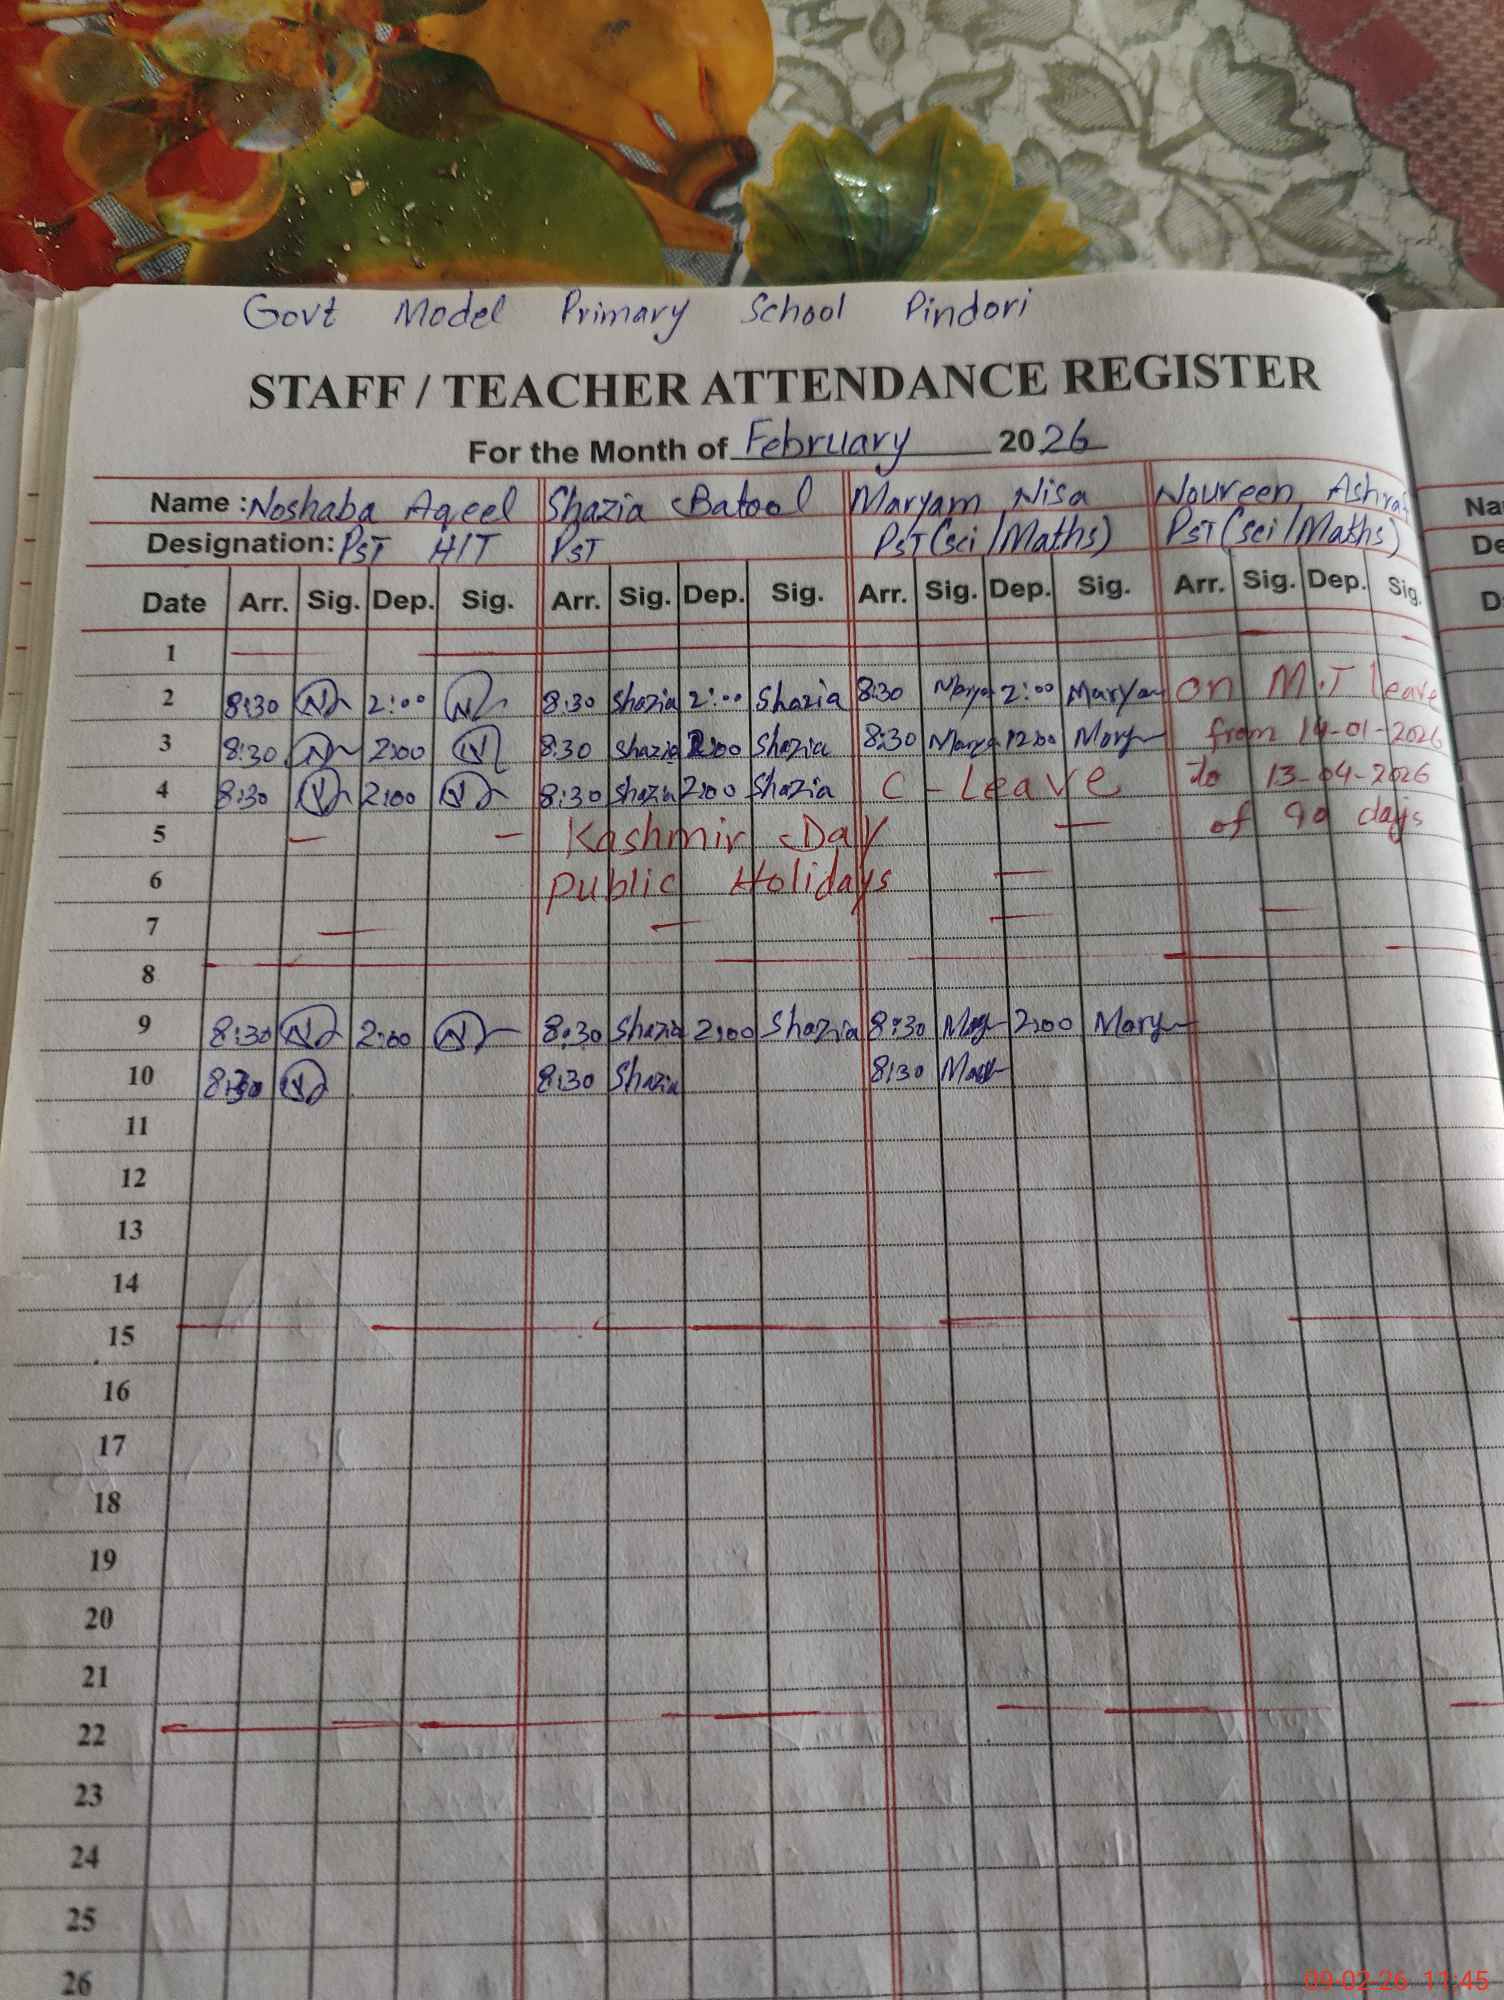 Govt Model Primary School Pindori
STAFF / TEACHER ATTENDANCE REGISTER
For the Month of February 2026
Name : Noshaba Aqeel Shazia Batool Maryam Nisa Noureen Ashraf Na
Designation: PST H/T PST PST (sci/Maths) PST (sci/Maths) De
Date Arr. Sig. Dep. Sig. Arr. Sig. Dep. Sig. Arr. Sig. Dep. Sig. Arr. Sig. Dep. Sig. D
1
2 8:30 2:00 8:30 Shazia 2:00 Shazia 8:30 2:00 Maryam on M.T leave
3 8:30 2:00 8:30 Shazia 2:00 Shazia 8:30 from 14-01-2026
4 8:30 2:00 8:30 Shazia 2:00 Shazia C-Leave to 13-04-2026
5 Kashmir Day of 90 days
6 Public Holidays
7
8
9 8:30 2:00 8:30 Shazia 2:00 Shazia 8:30 2:00
10 8:30 8:30 Shazia 8:30
11
12
13
14
15
16
17
18
19
20
21
22
23
24
25
26
09-02-26 11:45